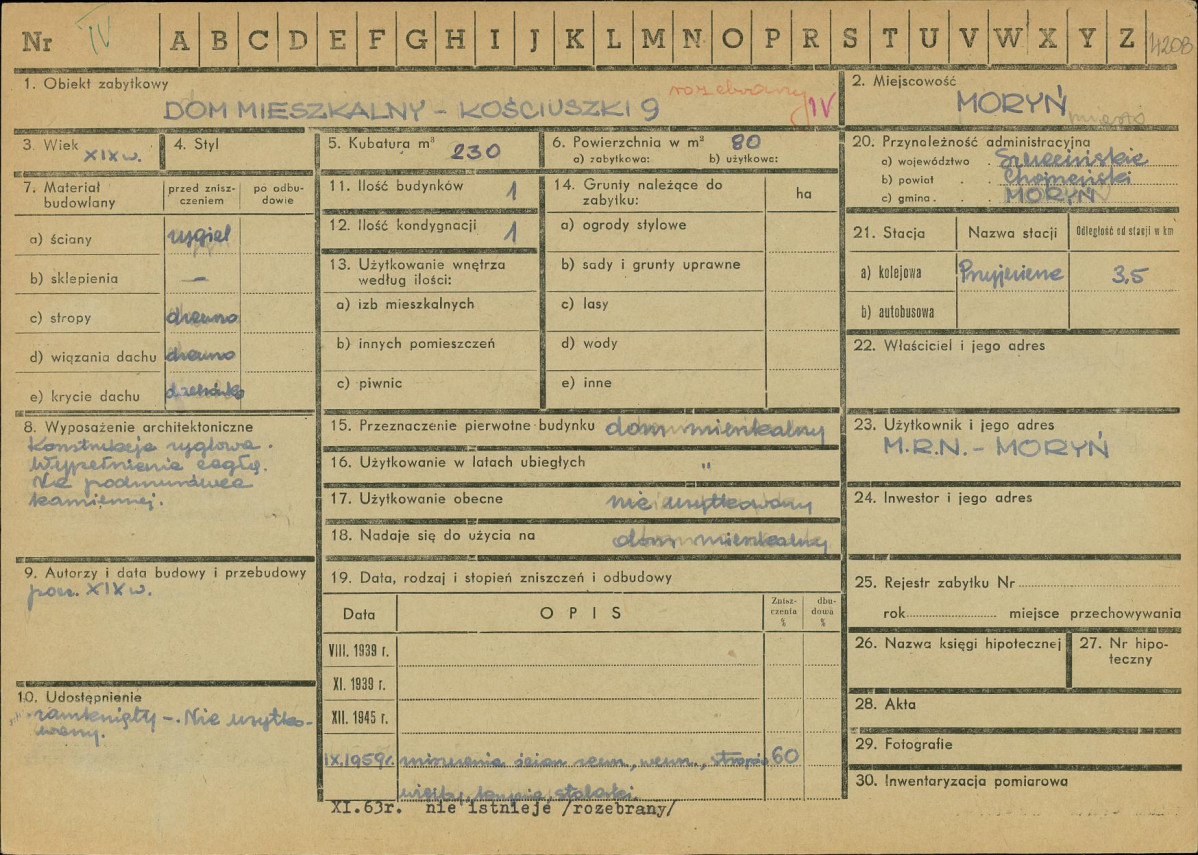 Nr IV A B C D E F G H I J K L M N O P R S T U V W X Y Z 420B
1. Obiekt zabytkowy
DOM MIESZKALNY – KOŚCIUSZKI 9 rozebrany IV
2. Miejscowość
MORYŃ miasto
3. Wiek XIX w.
4. Styl
5. Kubatura m³ 230
6. Powierzchnia w m² 80
a) zabytkowa: b) użytkowa:
7. Materiał budowlany
przed zniszczeniem
po odbudowie
a) ściany rygiel
b) sklepienia —
c) stropy drewno
d) wiązania dachu drewno
e) krycie dachu
8. Wyposażenie architektoniczne
Konstrukcja ryglowa.
Wypełnienia cegłą.
Na podmurówce
kamiennej.
9. Autorzy i data budowy i przebudowy
pocz. XIX w.
10. Udostępnienie
zamknięty –. Nie użytko-
wany.
11. Ilość budynków 1
12. Ilość kondygnacji 1
13. Użytkowanie wnętrza
według ilości:
a) izb mieszkalnych
b) innych pomieszczeń
c) piwnic
14. Grunty należące do
zabytku:
ha
a) ogrody stylowe
b) sady i grunty uprawne
c) lasy
d) wody
e) inne
15. Przeznaczenie pierwotne budynku dom mieszkalny
16. Użytkowanie w latach ubiegłych "
17. Użytkowanie obecne nie użytkowany
18. Nadaje się do użycia na dom mieszkalny
19. Data, rodzaj i stopień zniszczeń i odbudowy
Data OPIS Zniszczenia % dbudowań %
VIII. 1939 r.
XI. 1939 r.
XII. 1945 r.
IX.1959r. zniszczenia ścian zewn., wewn., stropów 60
więźby, tynków, stolarki.
XI.63r. nie istnieje /rozebrany/
20. Przynależność administracyjna
a) województwo Szczecińskie
b) powiat Chojneński
c) gmina MORYŃ
21. Stacja Nazwa stacji Odległość od stacji w km
a) kolejowa 3,5
b) autobusowa
22. Właściciel i jego adres
23. Użytkownik i jego adres
M.R.N. – MORYŃ
24. Inwestor i jego adres
25. Rejestr zabytku Nr
rok miejsce przechowywania
26. Nazwa księgi hipotecznej
27. Nr hipo-
teczny
28. Akta
29. Fotografie
30. Inwentaryzacja pomiarowa